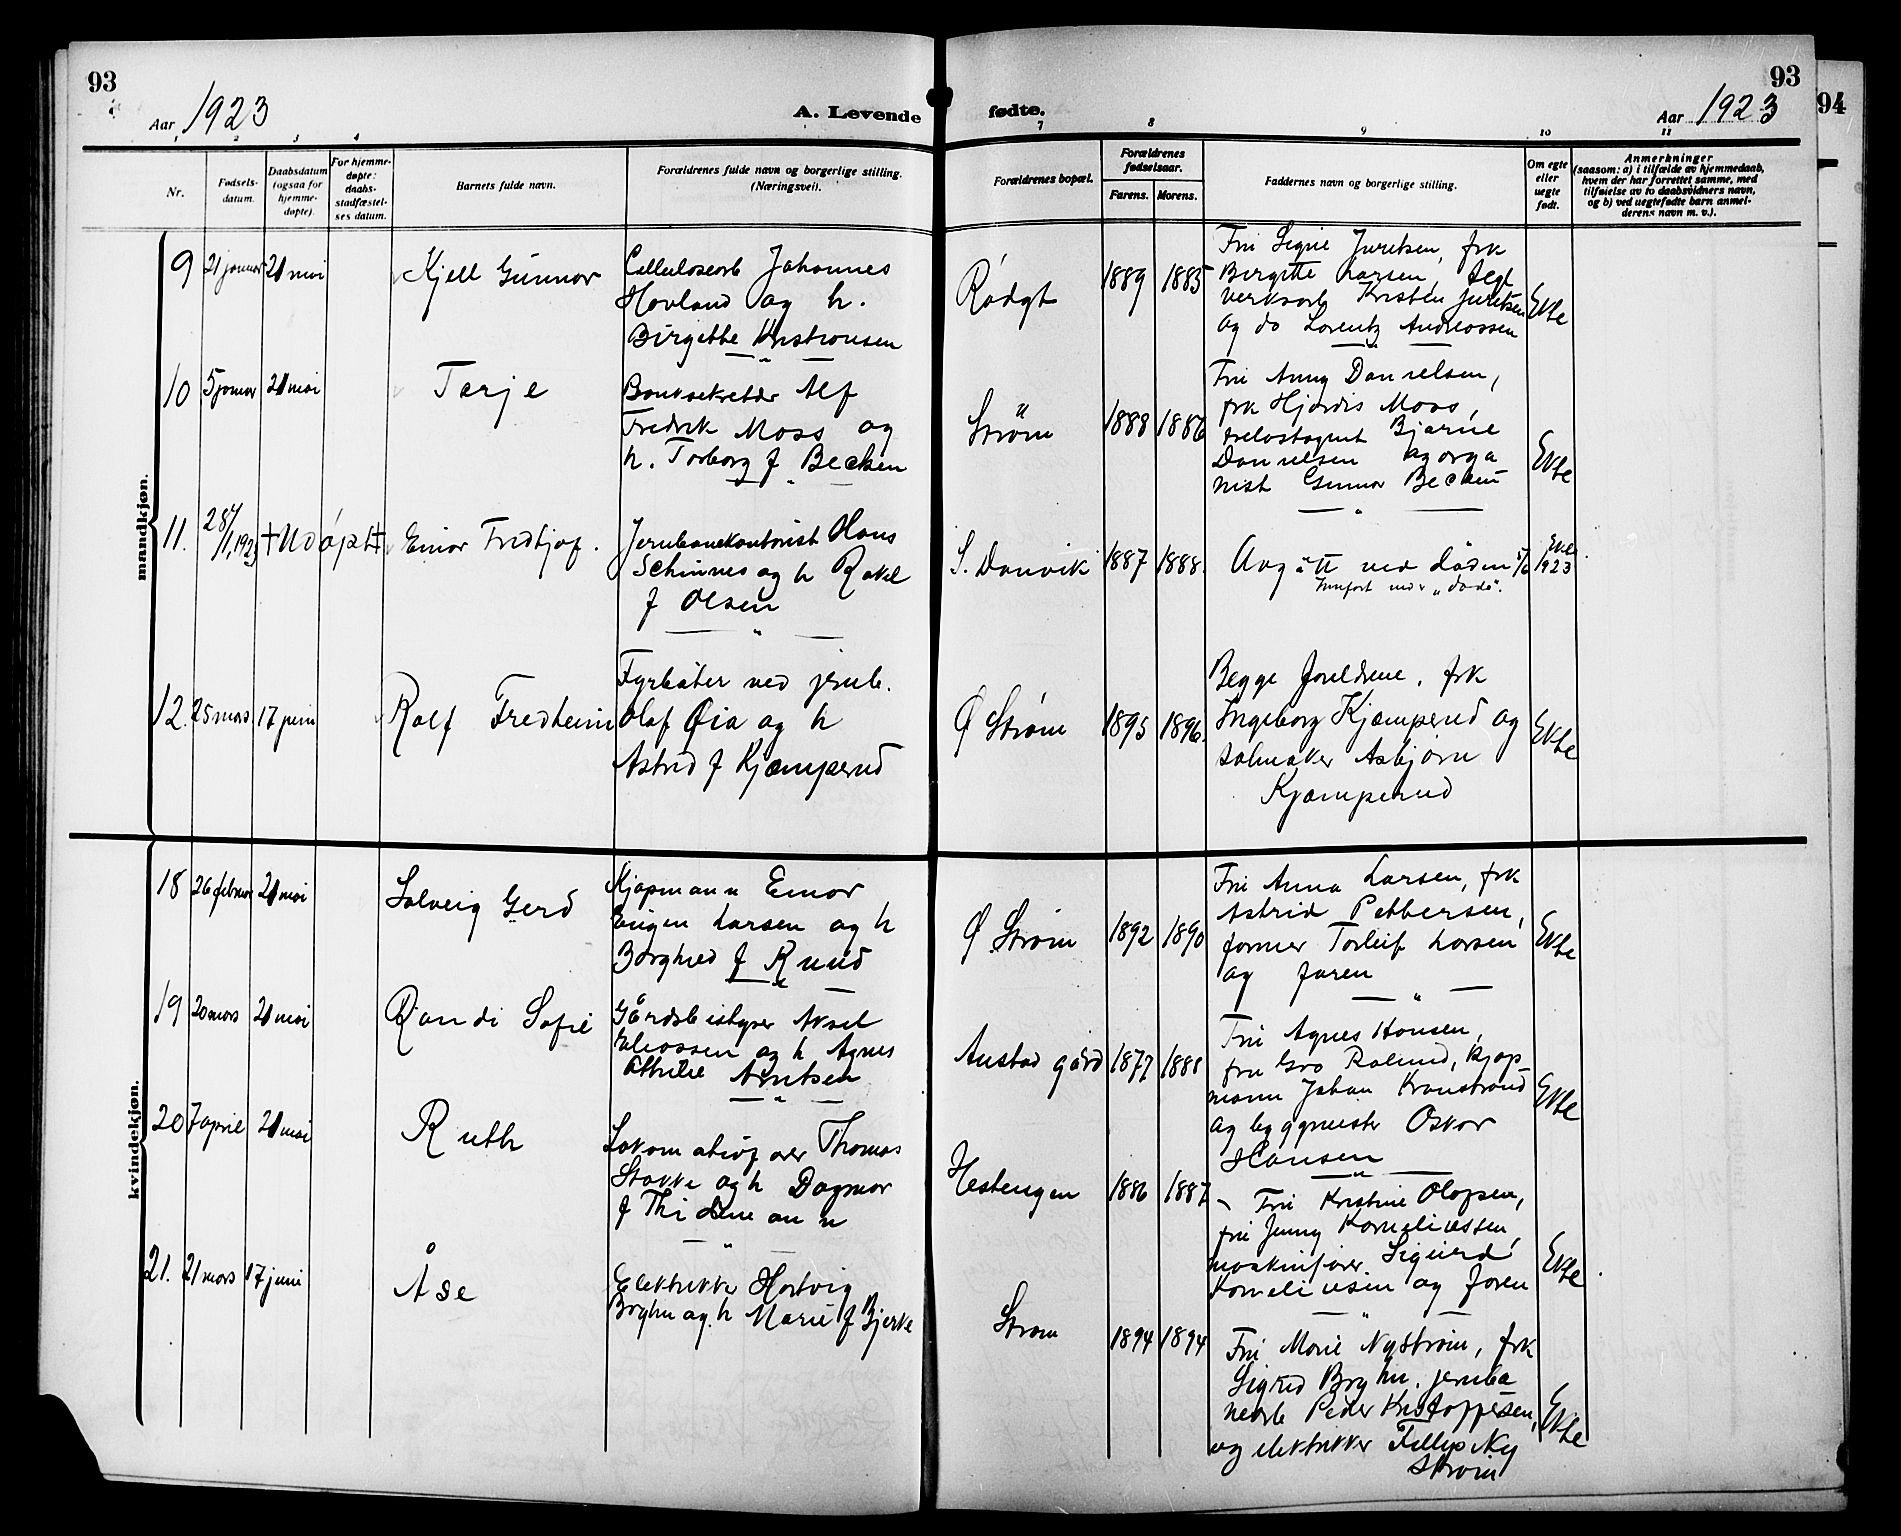 93
Aar 1923
A. Levende fødte.
93
Aar 1923
94
1 2 3 4 7 8 9 10 11
Nr.
Fødsels-
datum.
Daabsdatum
(ogsaa for
hjemme-
døpte).
For hjemme-
døpte:
daabs-
stadfæstel-
ses datum.
Barnets fulde navn.
Forældrenes fulde navn og borgerlige stilling.
(Næringsvei).
Forældrenes bopæl.
Forældrenes
fødselsaar.
Farens. Morens.
Faddernes navn og borgerlige stilling.
Om egte
eller
uegte
født.
Anmerkninger
(saasom: a) i tilfælde av hjemmedaab,
hvem der har forrettet samme, med
tilføielse av to daabsvidners navn,
og b) ved uegtefødte barn anmel-
derens navn m. v.).
mandkjøn.
9
21 januar
21 mai
Kjell Gunnar
Cellulosearb Johannes
Hovland og h.
Birgitte Kristiansen
Rødgt
1889
1885
Fru Signe Juritsen, frk
Birgitte Larsen,
verksarb Kristen Juritsen
og do Lorentz Andreassen
Ekte
10
5 januar
21 mai
Tarje
Banksekretær Alf
Fredrik Moss og
h. Torborg f Becken
Strøm
1888
1886
Fru Anny Danielsen,
frk Hjørdis Moss,
Bjarne
Danielsen og orga
nist Gunnar Becken
Ekte
11.
28/1, 1923
† Udøpt †
Einar Fridtjof.
Jernbanekontorist Hans
Schinnes og h Rakel
f Olsen
S. Danvik
1887
1888.
Avgått ved døden 5/6 1923
Innført under "døde".
Ekte
12.
25 mars
17 juni
Ralf Fredheim
Fyrbøter ved jernb.
Olaf Øia og h
Astrid f Kjæmperud
Ø Strøm
1895
1896.
Begge foreldrene, frk
Ingeborg Kjæmperud og
salmaker Asbjørn
Kjæmperud
Ekte
kvindekjøn.
18
26 februar
21 mai
Solveig Gerd
Kjøpmann Einar
Eugen Larsen og h
Borghild f Ruud
Ø Strøm
1892
1890
Fru Anna Larsen, frk
Astrid Pettersen,
former Torleif Larsen
og faren
Ekte
19
20 mars
21 mai
Randi Sofie
Gårdsbestyrer Aksel
Eliassen og h Agnes
Ottilie Arntsen
Austad gård
1877
1888
Fru Agnes Hansen,
fru Gro Rolund, kjøp
mann Johan Kranstrand
og byggmester Oskar
Hansen
Ekte
20
7 april
21 mai
Ruth
Lokomotivfører Thomas
Stakke og h Dagmar
f Thidemann
Hestengen
1886
1887
Fru Kristine Olafsen,
fru Jenny Korneliussen,
maskinfører Sigurd
Korneliusen og faren
Ekte
21.
21 mars
17 juni
Åse
Elektriker Hartvig
Bryhn og h Marie f Bjerke
Strøm
1894
1894
Fru Marie Nystrøm, frk
Sigrid Bryhn, jernba
nearb Peder Kristoffersen,
og elektriker Fillip Ny
strøm
Ekte